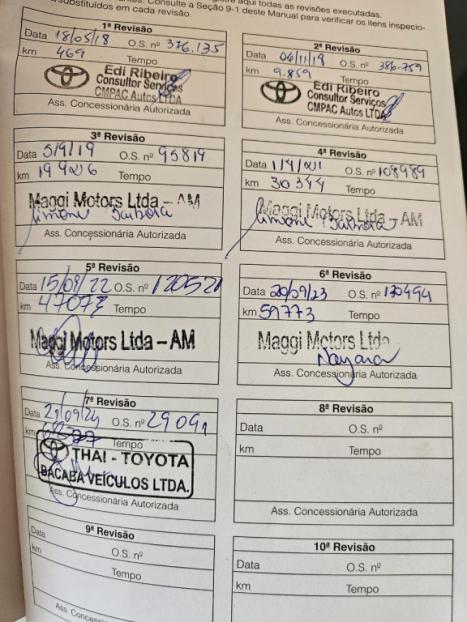 aqui todas as revisões executadas.
Consulte a Seção 9-1 deste Manual para verificar os itens inspecio-
substituídos em cada revisão.
1ª Revisão
Data 18/05/18 O.S. nº 376.135
km 469 Tempo
Edi Ribeiro
Consultor Serviços
CMPAC Autos LTDA
Ass. Concessionária Autorizada
2ª Revisão
Data 06/11/18 O.S. nº 386.759
km 9.859 Tempo
Edi Ribeiro
Consultor Serviços
CMPAC Autos LTDA
Ass. Concessionária Autorizada
3ª Revisão
Data 5/9/19 O.S. nº 95819
km 19926 Tempo
Maggi Motors Ltda - AM
Ass. Concessionária Autorizada
4ª Revisão
Data O.S. nº 108989
km Tempo
Maggi Motors Ltda - AM
Ass. Concessionária Autorizada
5ª Revisão
Data 15/09/22 O.S. nº 120521
km 47073 Tempo
Maggi Motors Ltda - AM
Ass. Concessionária Autorizada
6ª Revisão
Data 20/09/23 O.S. nº 130494
km 59773 Tempo
Maggi Motors Ltda
Nayara
Ass. Concessionária Autorizada
7ª Revisão
Data 21/09/24 O.S. nº 29091
km Tempo
THAI - TOYOTA
BACABA VEÍCULOS LTDA.
Ass. Concessionária Autorizada
8ª Revisão
Data O.S. nº
km Tempo
Ass. Concessionária Autorizada
9ª Revisão
Data O.S. nº
km Tempo
Ass. Concessionária Autorizada
10ª Revisão
Data O.S. nº
km Tempo